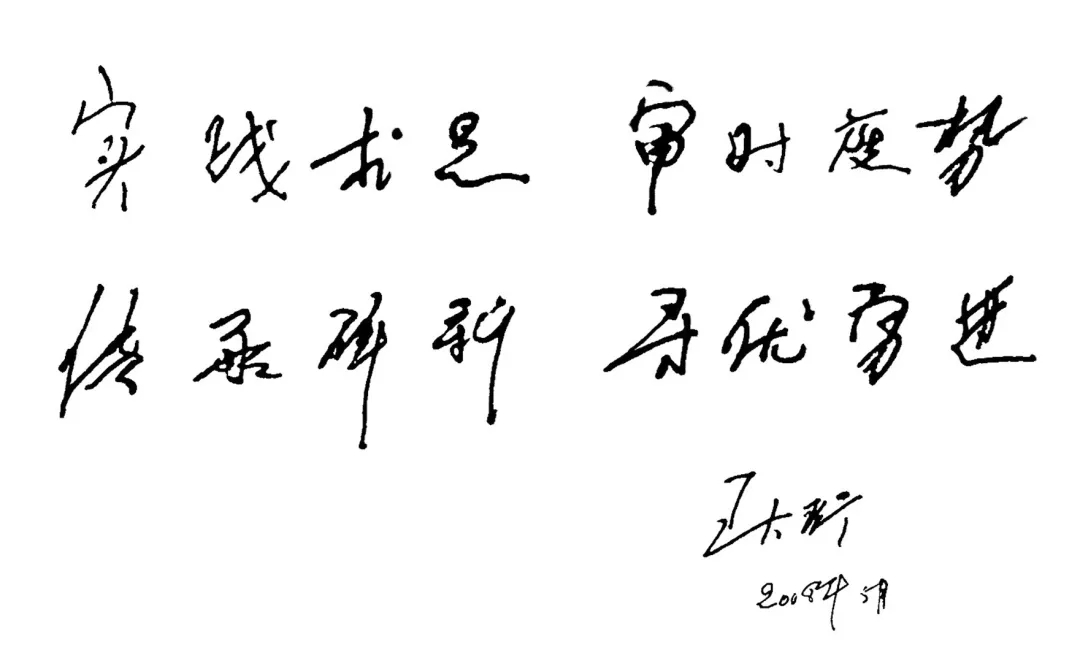 实践求是 审时度势
传承辟新 寻优勇进
王大珩
2008年 月